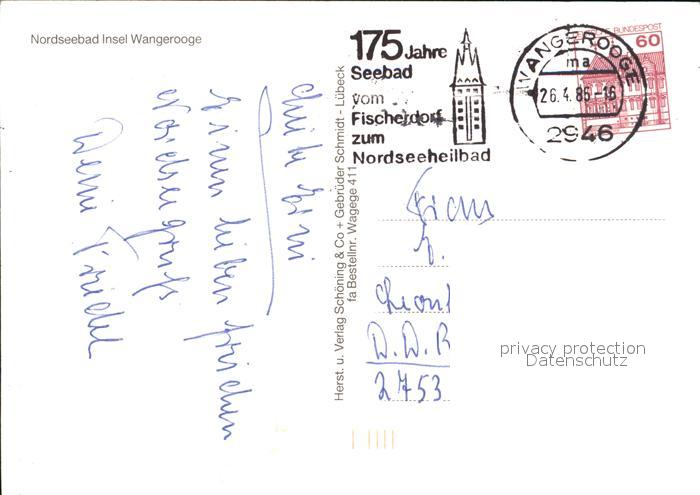 Nordseebad Insel Wangerooge
Einen lieben frischen
Nordseegruß
Deine Friedel
Herst. u. Verlag Schöning & Co + Gebrüder Schmidt - Lübeck
fa Bestellnr. Wagege 411
175 Jahre
Seebad
vom
Fischerdorf
zum
Nordseeheilbad
WANGEROOGE
ma
26.4.86-16
2946
BUNDESPOST
60
Frau
D.D.R
2753
privacy protection
Datenschutz